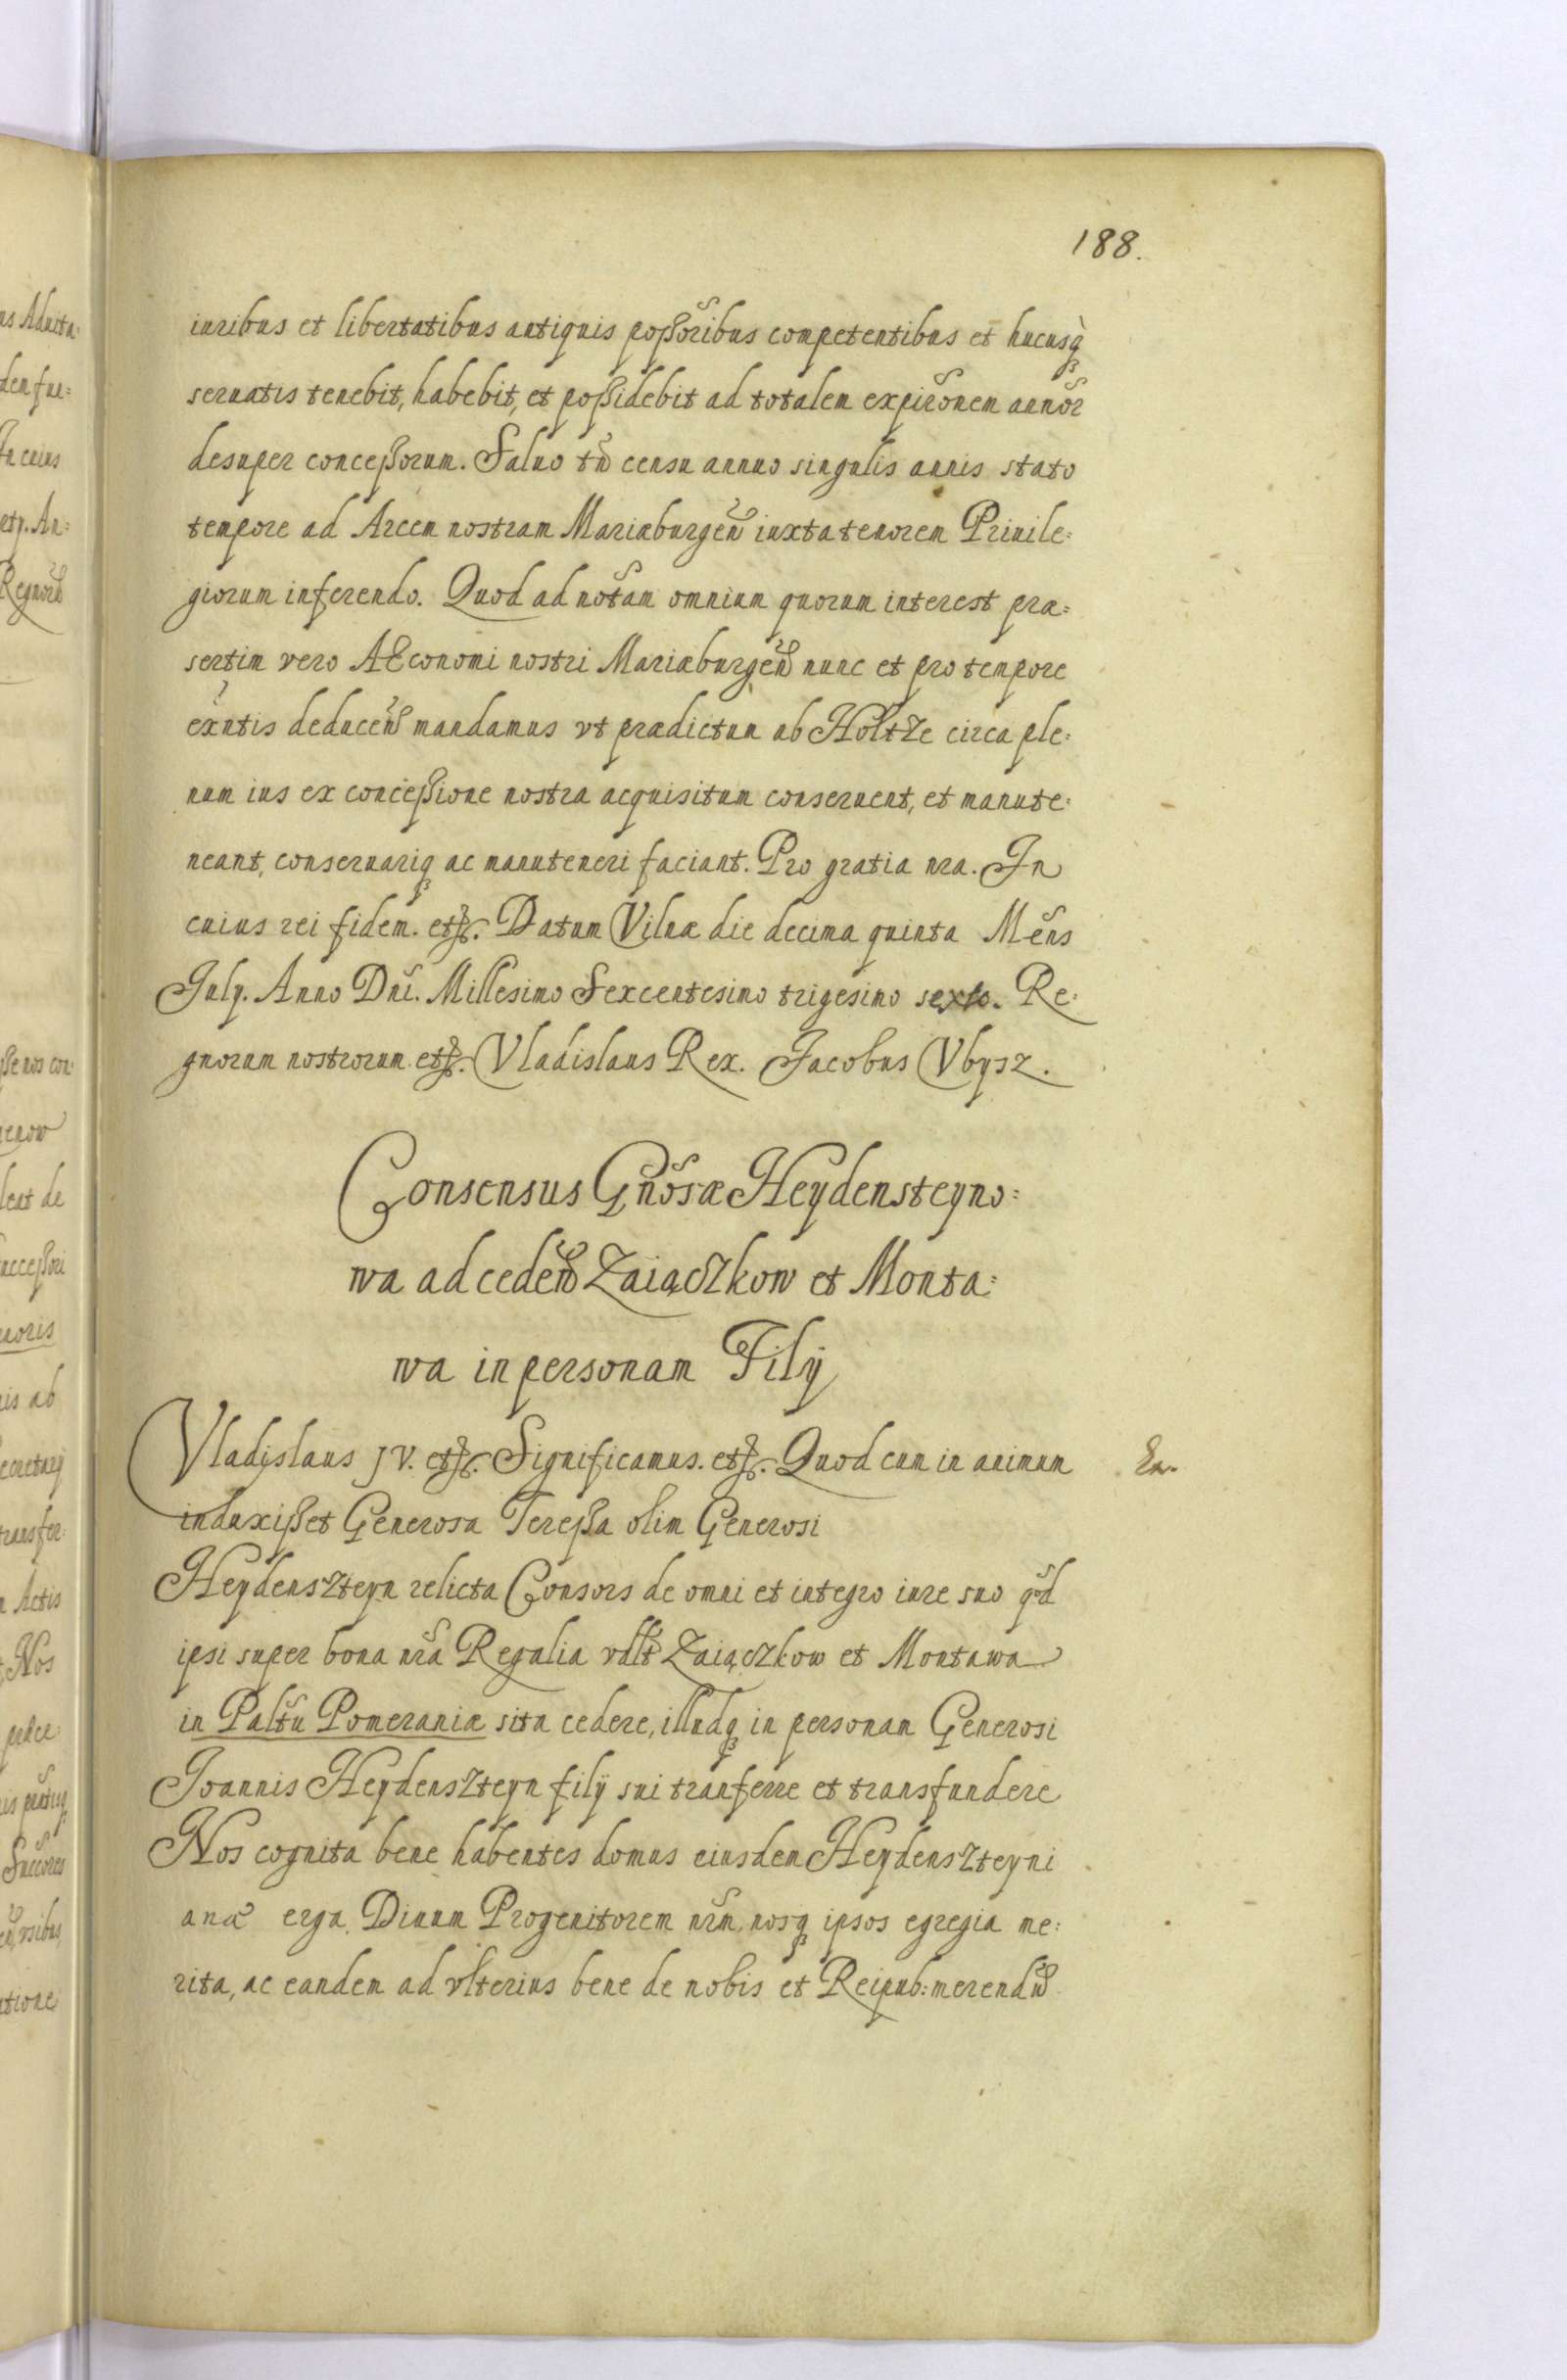 188.
iuribus et libertatibus antiquis poßoribus competentibus et hucusq̀
seruatis tenebit, habebit, et poßidebit ad totalem expir̃onem annor̃
desuper conceßorum. Saluo tñ censu annuo singulis annis stato
tempore ad Arcem nostram Mariæburgeñ iuxta tenorem Priuile:
giorum inferendo. Quod ad not̃am omnium quorum interest præ:
sertim vero AEconomi nostri Mariæburgeñ nunc et pro tempore
exñtis deduceñ mandamus vt prædictum ab Holtze circa ple:
num ius ex conceßione nostra acquisitum conseruent, et manute:
neant, conseruariq ac manuteneri faciant. Pro gratia nra. In
cuius rei fidem. etz. Datum Vilnæ die decima quinta Meñs
July. Anno Dñi. Millesimo Sexcentesimo trigesimo sexto. Re:
gnorum nostrorum etz. Vladislaus Rex. Jacobus Vbysz.
Consensus Gñosæ Heydensteyno:
wa ad cedeñ Zaiączkow et Monta:
wa in personam Filÿ
Vladislaus JV. etz. Significamus. etz. Quod cum in animum
induxißet Generosa Tereßa olim Generosi
Heydenszteyn relicta Consors de omni et integro iure suo qd̃
ipsi super bona nr̃a Regalia vdlt Zaiączkow et Montawa
in Palt̃u Pomeraniæ sita cedere, illudq in personam Generosi
Joannis Heydenszteyn filÿ sui tranferre et transfundere
Nos cognita bene habentes domus eiusdem Heydenszteyni
anæ erga Diuum Progenitorem nr̃m, nosq ipsos egregia me:
rita, ac eandem ad vlterius bene de nobis et Reipub: merendũ